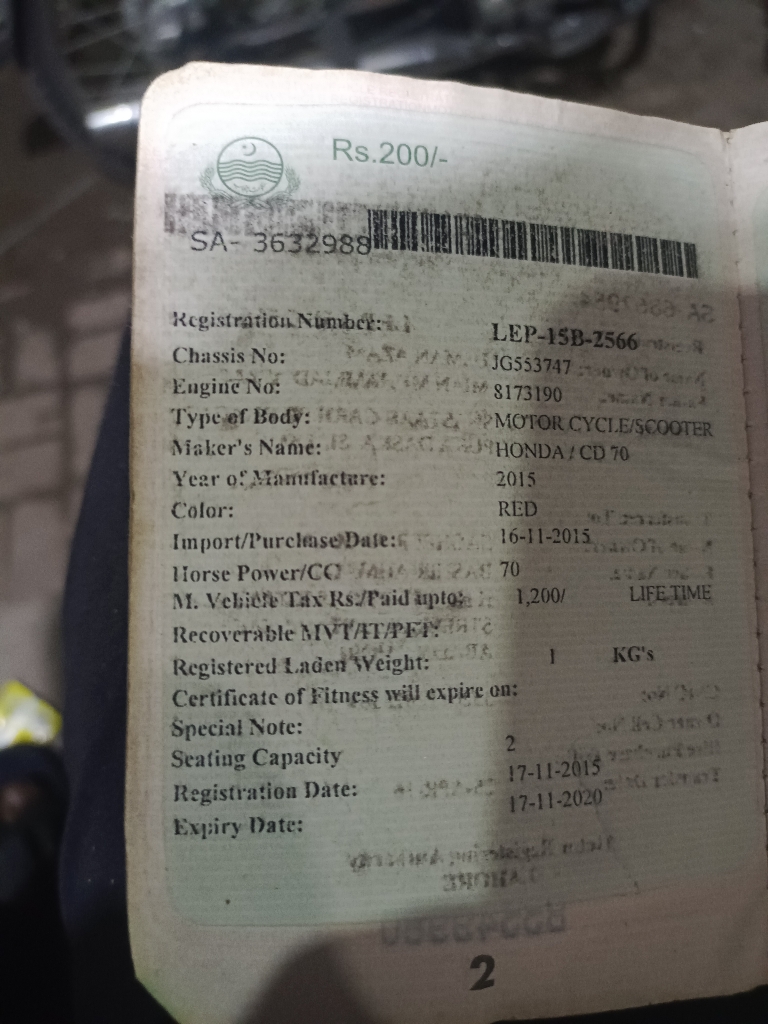 Rs.200/-
SA- 3632988
Registration Number: LEP-15B-2566
Chassis No: JG553747
Engine No: 8173190
Type of Body: MOTOR CYCLE/SCOOTER
Maker's Name: HONDA / CD 70
Year of Manufacture: 2015
Color: RED
Import/Purchase Date: 16-11-2015
Horse Power/CC 70
M. Vehicle Tax Rs./Paid upto: 1,200/ LIFE TIME
Recoverable MVT/IT/PFT:
Registered Laden Weight: 1 KG's
Certificate of Fitness will expire on:
Special Note:
Seating Capacity 2
Registration Date: 17-11-2015
Expiry Date: 17-11-2020
2